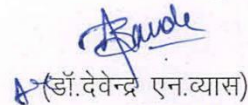 (डॉ.देवेन्द्र एन.व्यास)